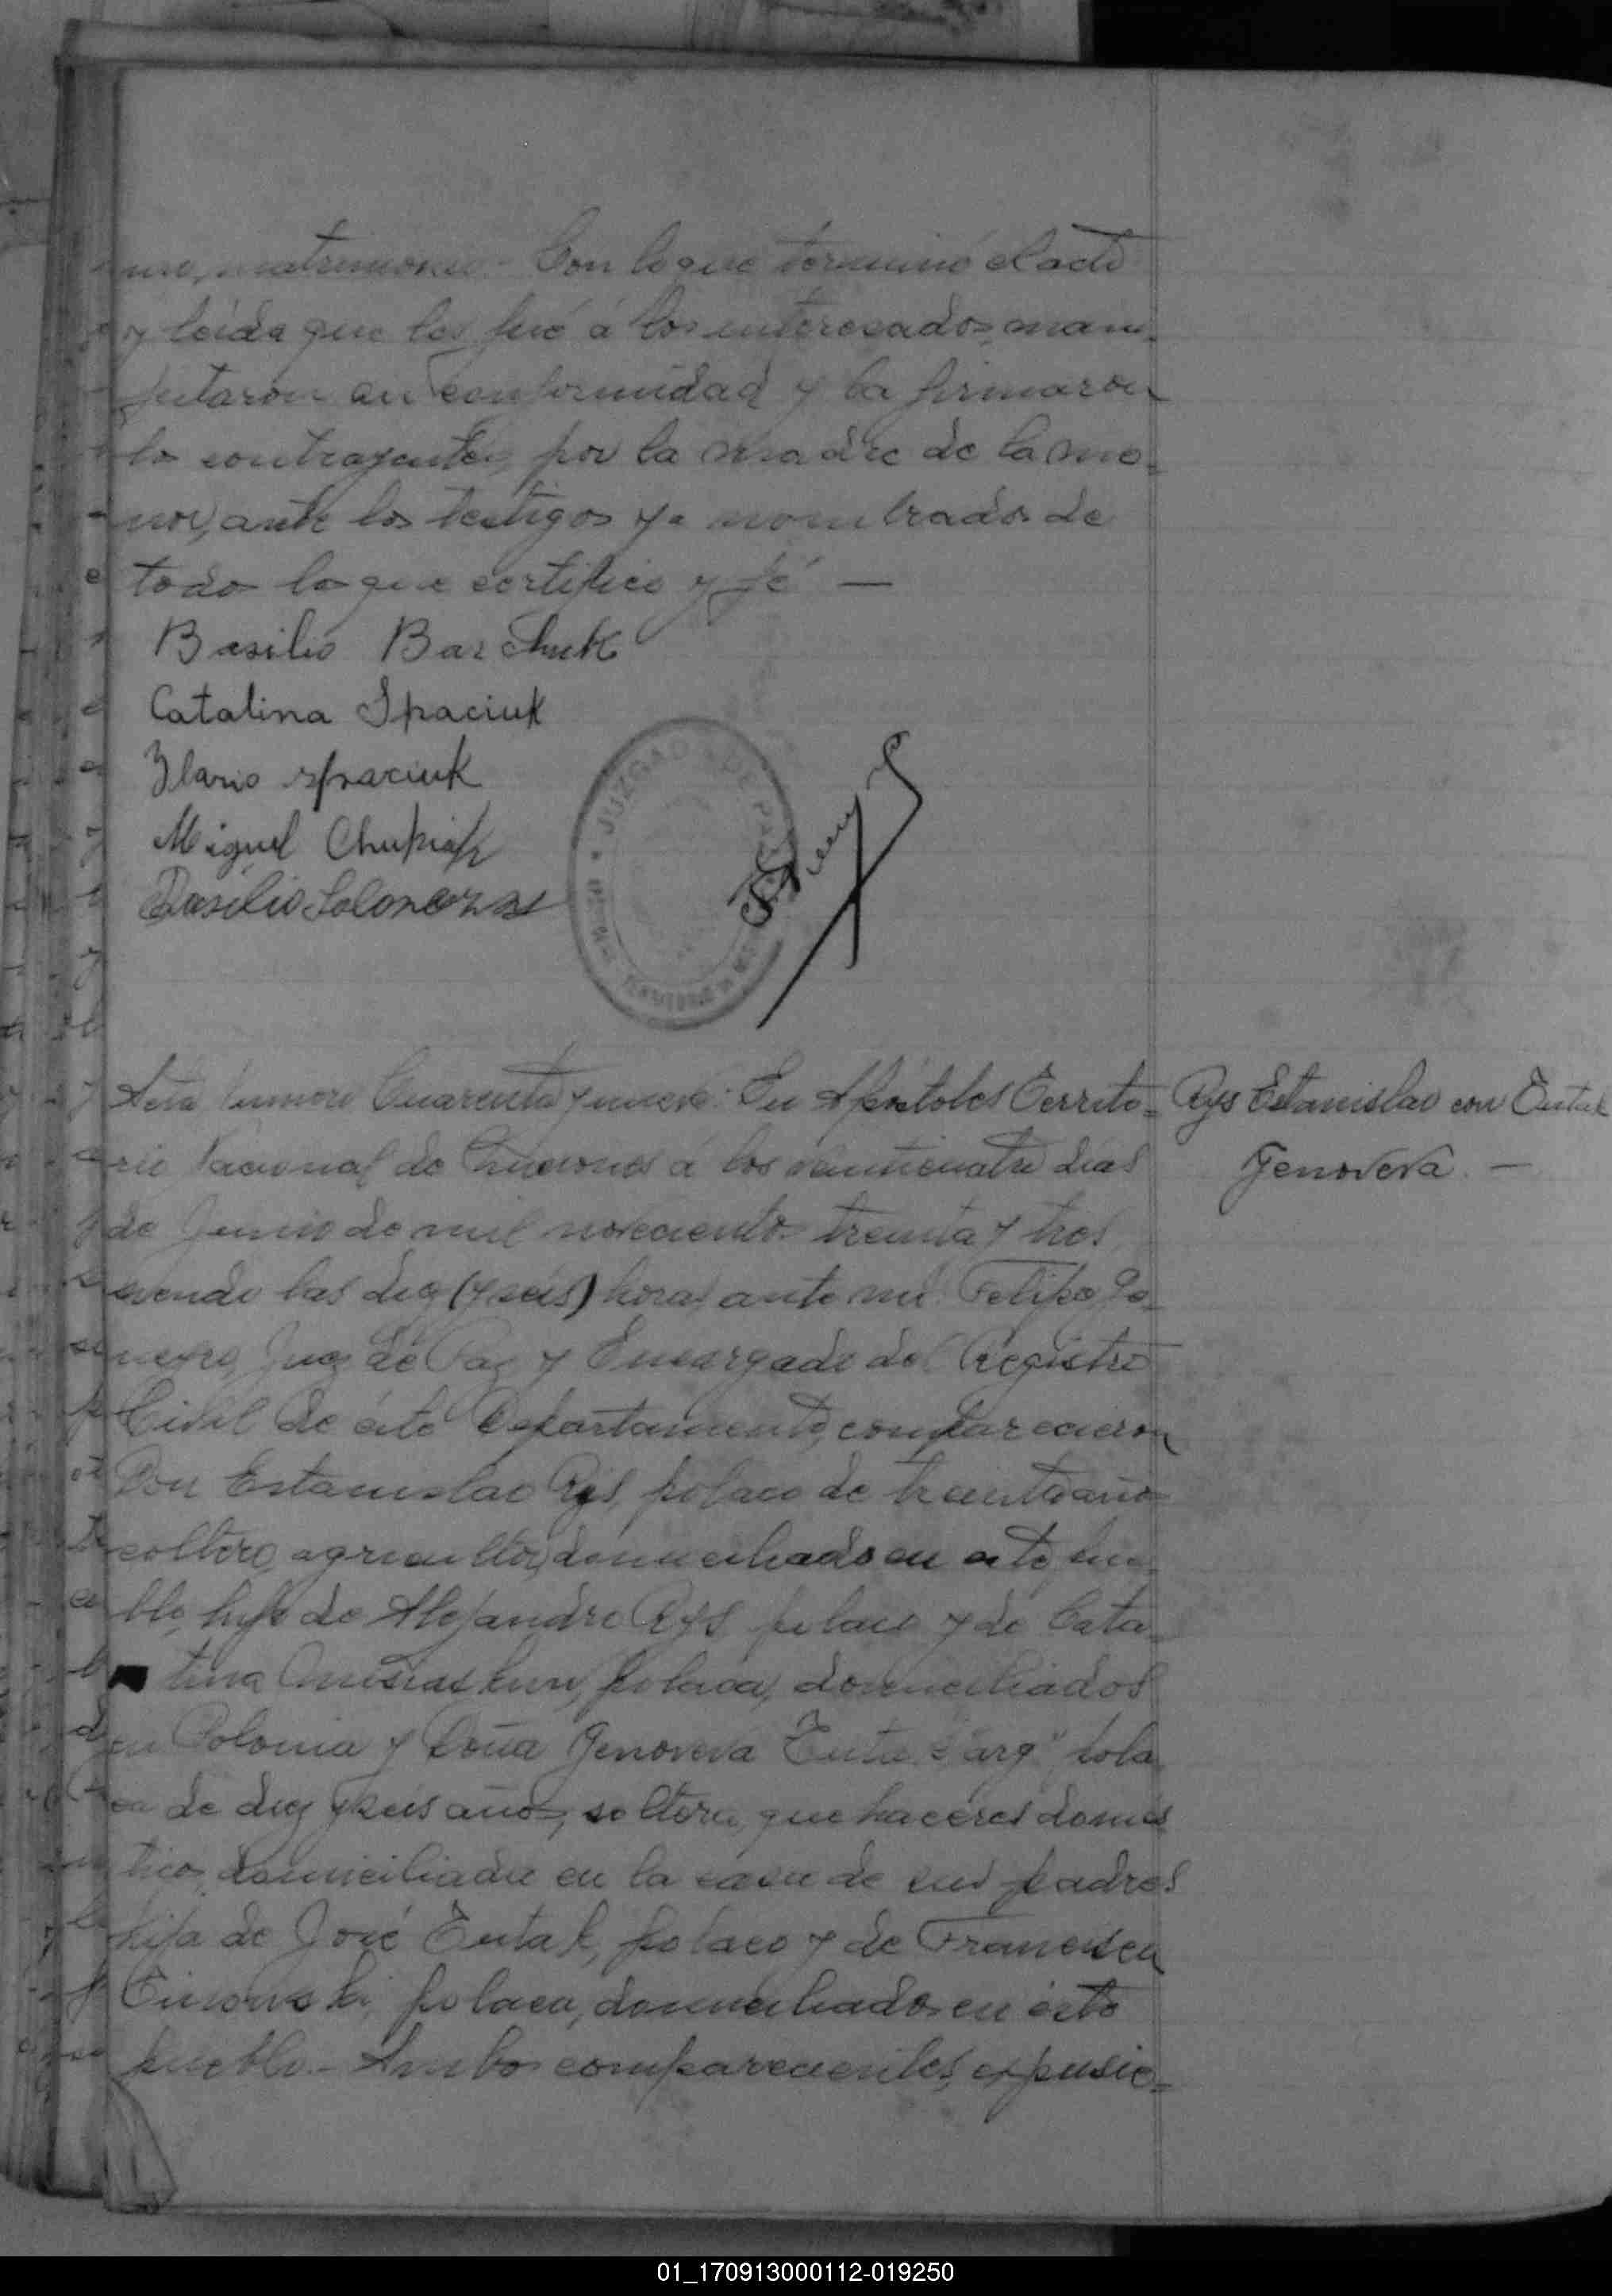 matrimonio.- Con lo que terminó el acto
y leída que les fué á los interesados, mani-
festaron su conformidad y la firmaron
lo contrayentes, por la madre de la me-
nor, ante los testigos ya nombrados de
todo lo que certifico y fé —
Basilio Barchuk
Catalina Spaciuk
Ilario Spaciuk
Miguel Chupiak
Basilio
JUZGADO DE PAZ
Acta número Cuarenta y nueve: En Apóstoles Territo-
rio Nacional de Misiones á los veinticuatro días
de Junio de mil novecientos treinta y tres
siendo las diez (y seis) horas ante mi: Felipe
Juez de Paz y Encargado del Registro
Civil de éste Departamento, comparecieron
Don Estanislao Rys, polaco de treinta años
soltero, agricultor, domiciliado en este pue-
blo, hijo de Alejandro Rys polaco y de Cata-
lina polaca, domiciliados
en Polonia y Doña Genoveva "arg" pola
ca de diez y seis años, soltera, que haceres domés
ticos, domiciliada en la casa de sus padres
hija de José Tutak, polaco y de Francisca
polaca, domiciliados en ésto
pueblo.- Ambos comparecientes, expusie-
Rys Estanislao con Tutak
Genoveva. —
01_170913000112-019250